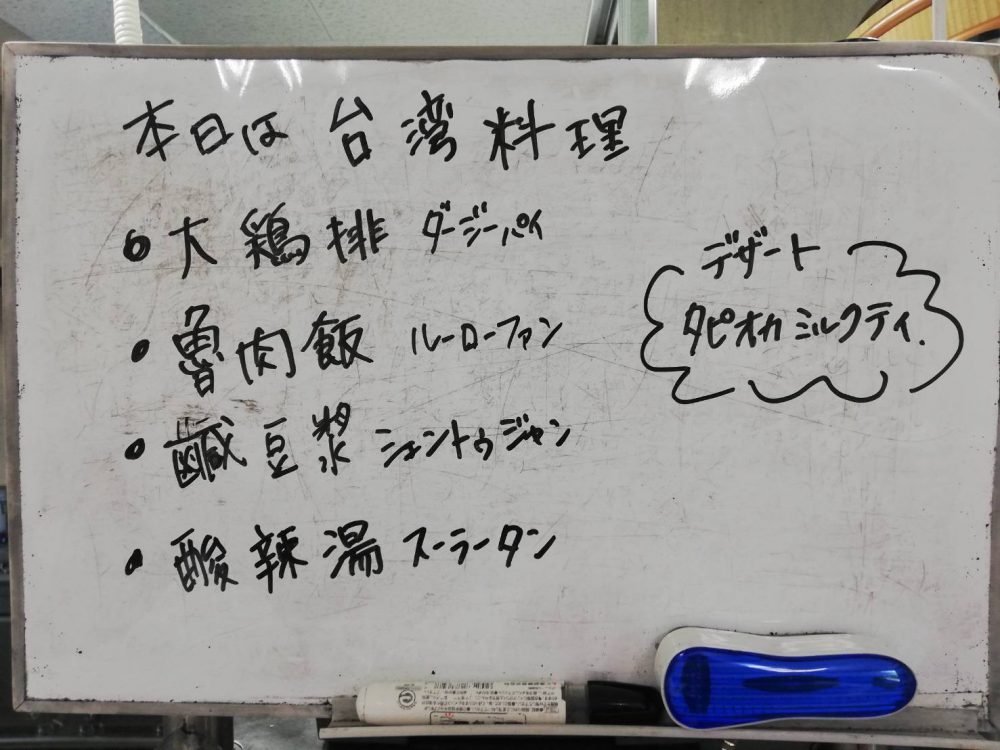 本日は 台湾料理
• 大鶏排 ダージーパイ
• 魯肉飯 ルーローファン
• 鹹豆漿 シェントゥジャン
• 酸辣湯 スーラータン
デザート
タピオカミルクティ.